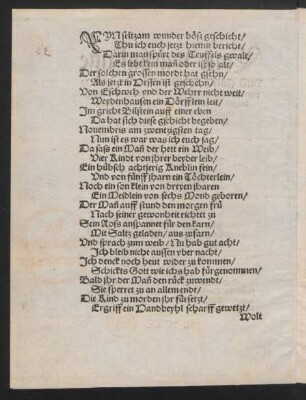 EIn seltzam wunder böß geschicht/
Thu ich euch jetzt hiemit bericht/
Darin man spürt des Teuffels gwalt/
Es lebt kein mañ oder ist so alt/
Der solchen grossen mordt hat gsehn/
Als jetzt in Hessen ist geschehn/
Von Eschweh vnd der Wehr nicht weit/
Weydenhausen ein Dörfflein leit/
Im gricht Bilstein auff einer eben
Da hat sich diese gschicht begeben/
Nouembris am zwentzigsten tag/
Nun ist es war was ich euch sag/
Da saß ein Mañ der hett ein Weib/
Vier Kindt von jhrer beyder leib/
Ein hübsch achtjerig Kneblin fein/
Vnd von fünff jharen ein Töchterlein/
Noch ein son klein von dreyen jharen
Ein Meidlein von sechs Mond geboren/
Der Mañ auff stund den morgen frü
Nach seiner gewonheit richtet zu
Sein Roß anspannet für den karn/
Mit Saltz geladen/ aus zufarn/
Vnd sprach zum weib/ Nu hab gut acht/
Ich bleib nicht aussen vber nacht/
Ich denck noch heut wider zu kommen/
Schickts Gott wie ichs hab fürgenommen/
Bald jhr der Mañ den rück zuwendt/
Sie sperret zu an allem endt/
Die Kind zu morden jhr fürsetzt/
Ergriff ein Handbeyhl scharff gewetzt/
Wolt